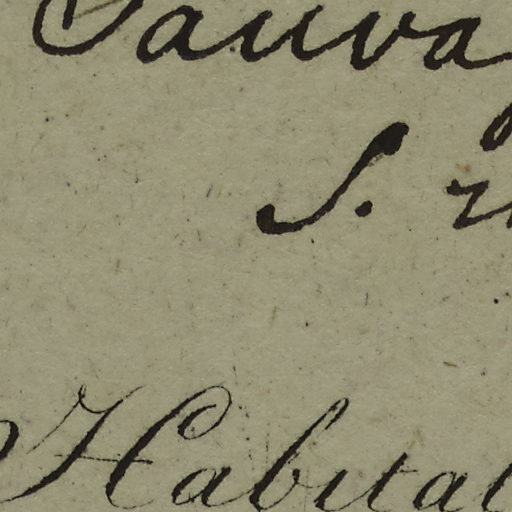 Sauva
S.
Habitat